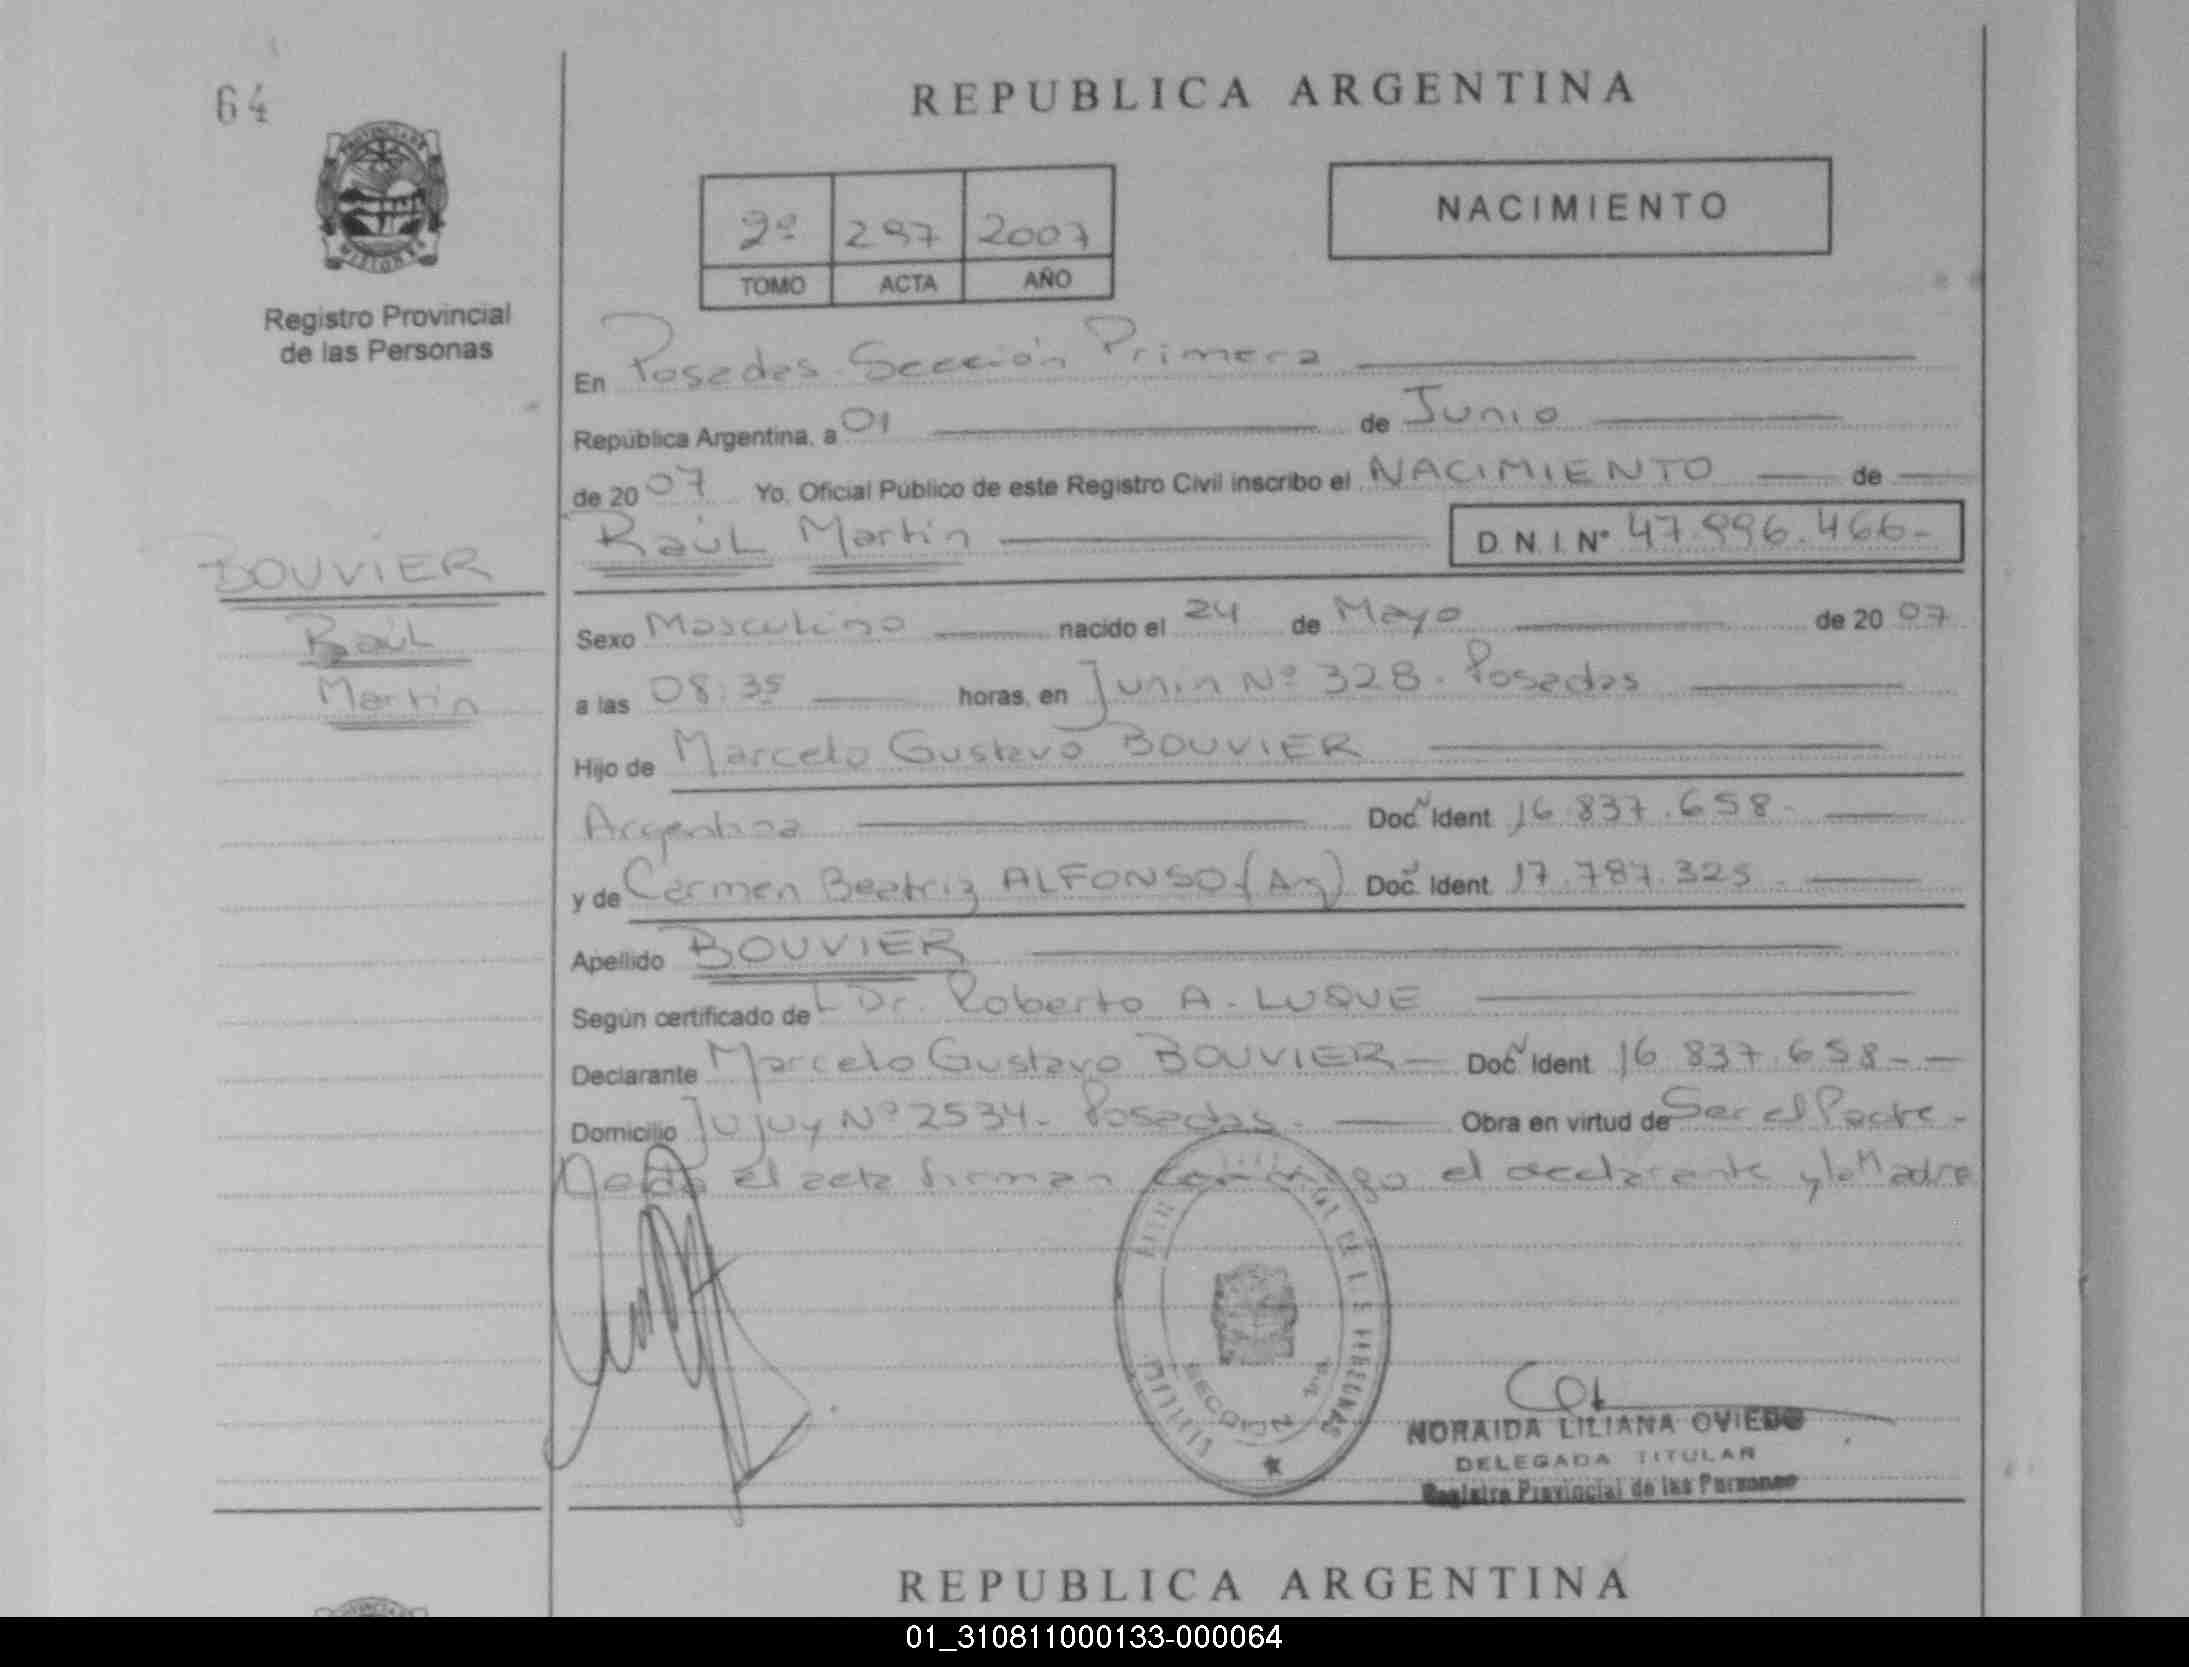 64
REPUBLICA ARGENTINA
PROVINCIA DE
MISIONES
Registro Provincial
de las Personas
2º 297 2007
TOMO ACTA AÑO
NACIMIENTO
En Posadas Sección Primera
República Argentina, a 01 de Junio
de 2007 Yo, Oficial Público de este Registro Civil inscribo el NACIMIENTO de
Raúl Martín D.N.I. Nº 47.996.466-
BOUVIER
Raúl
Martín
Sexo Masculino nacido el 24 de Mayo de 2007
a las 08:35 horas, en Junin Nº 328. Posadas
Hijo de Marcelo Gustavo BOUVIER
Argentina Doc. Ident. 16.837.658-
y de Carmen Beatriz ALFONSO (Arg) Doc. Ident. 17.787.325
Apellido BOUVIER
Según certificado del Dr. Roberto A. LUQUE
Declarante Marcelo Gustavo BOUVIER Doc. Ident. 16.837.658-
Domicilio Jujuy Nº 2534- Posadas. Obra en virtud de Ser el Padre-
el acta firman conmigo el declarante y la Madre
DE LAS PERSONAS
SECCION
NORAIDA LILIANA OVIEDO
DELEGADA TITULAR
Registro Provincial de las Personas
REPUBLICA ARGENTINA
01_310811000133-000064